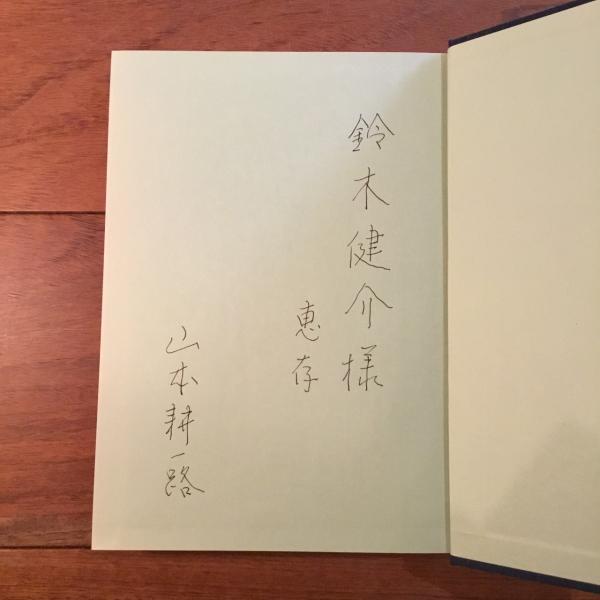 鈴木健介様
恵存
山本耕一路